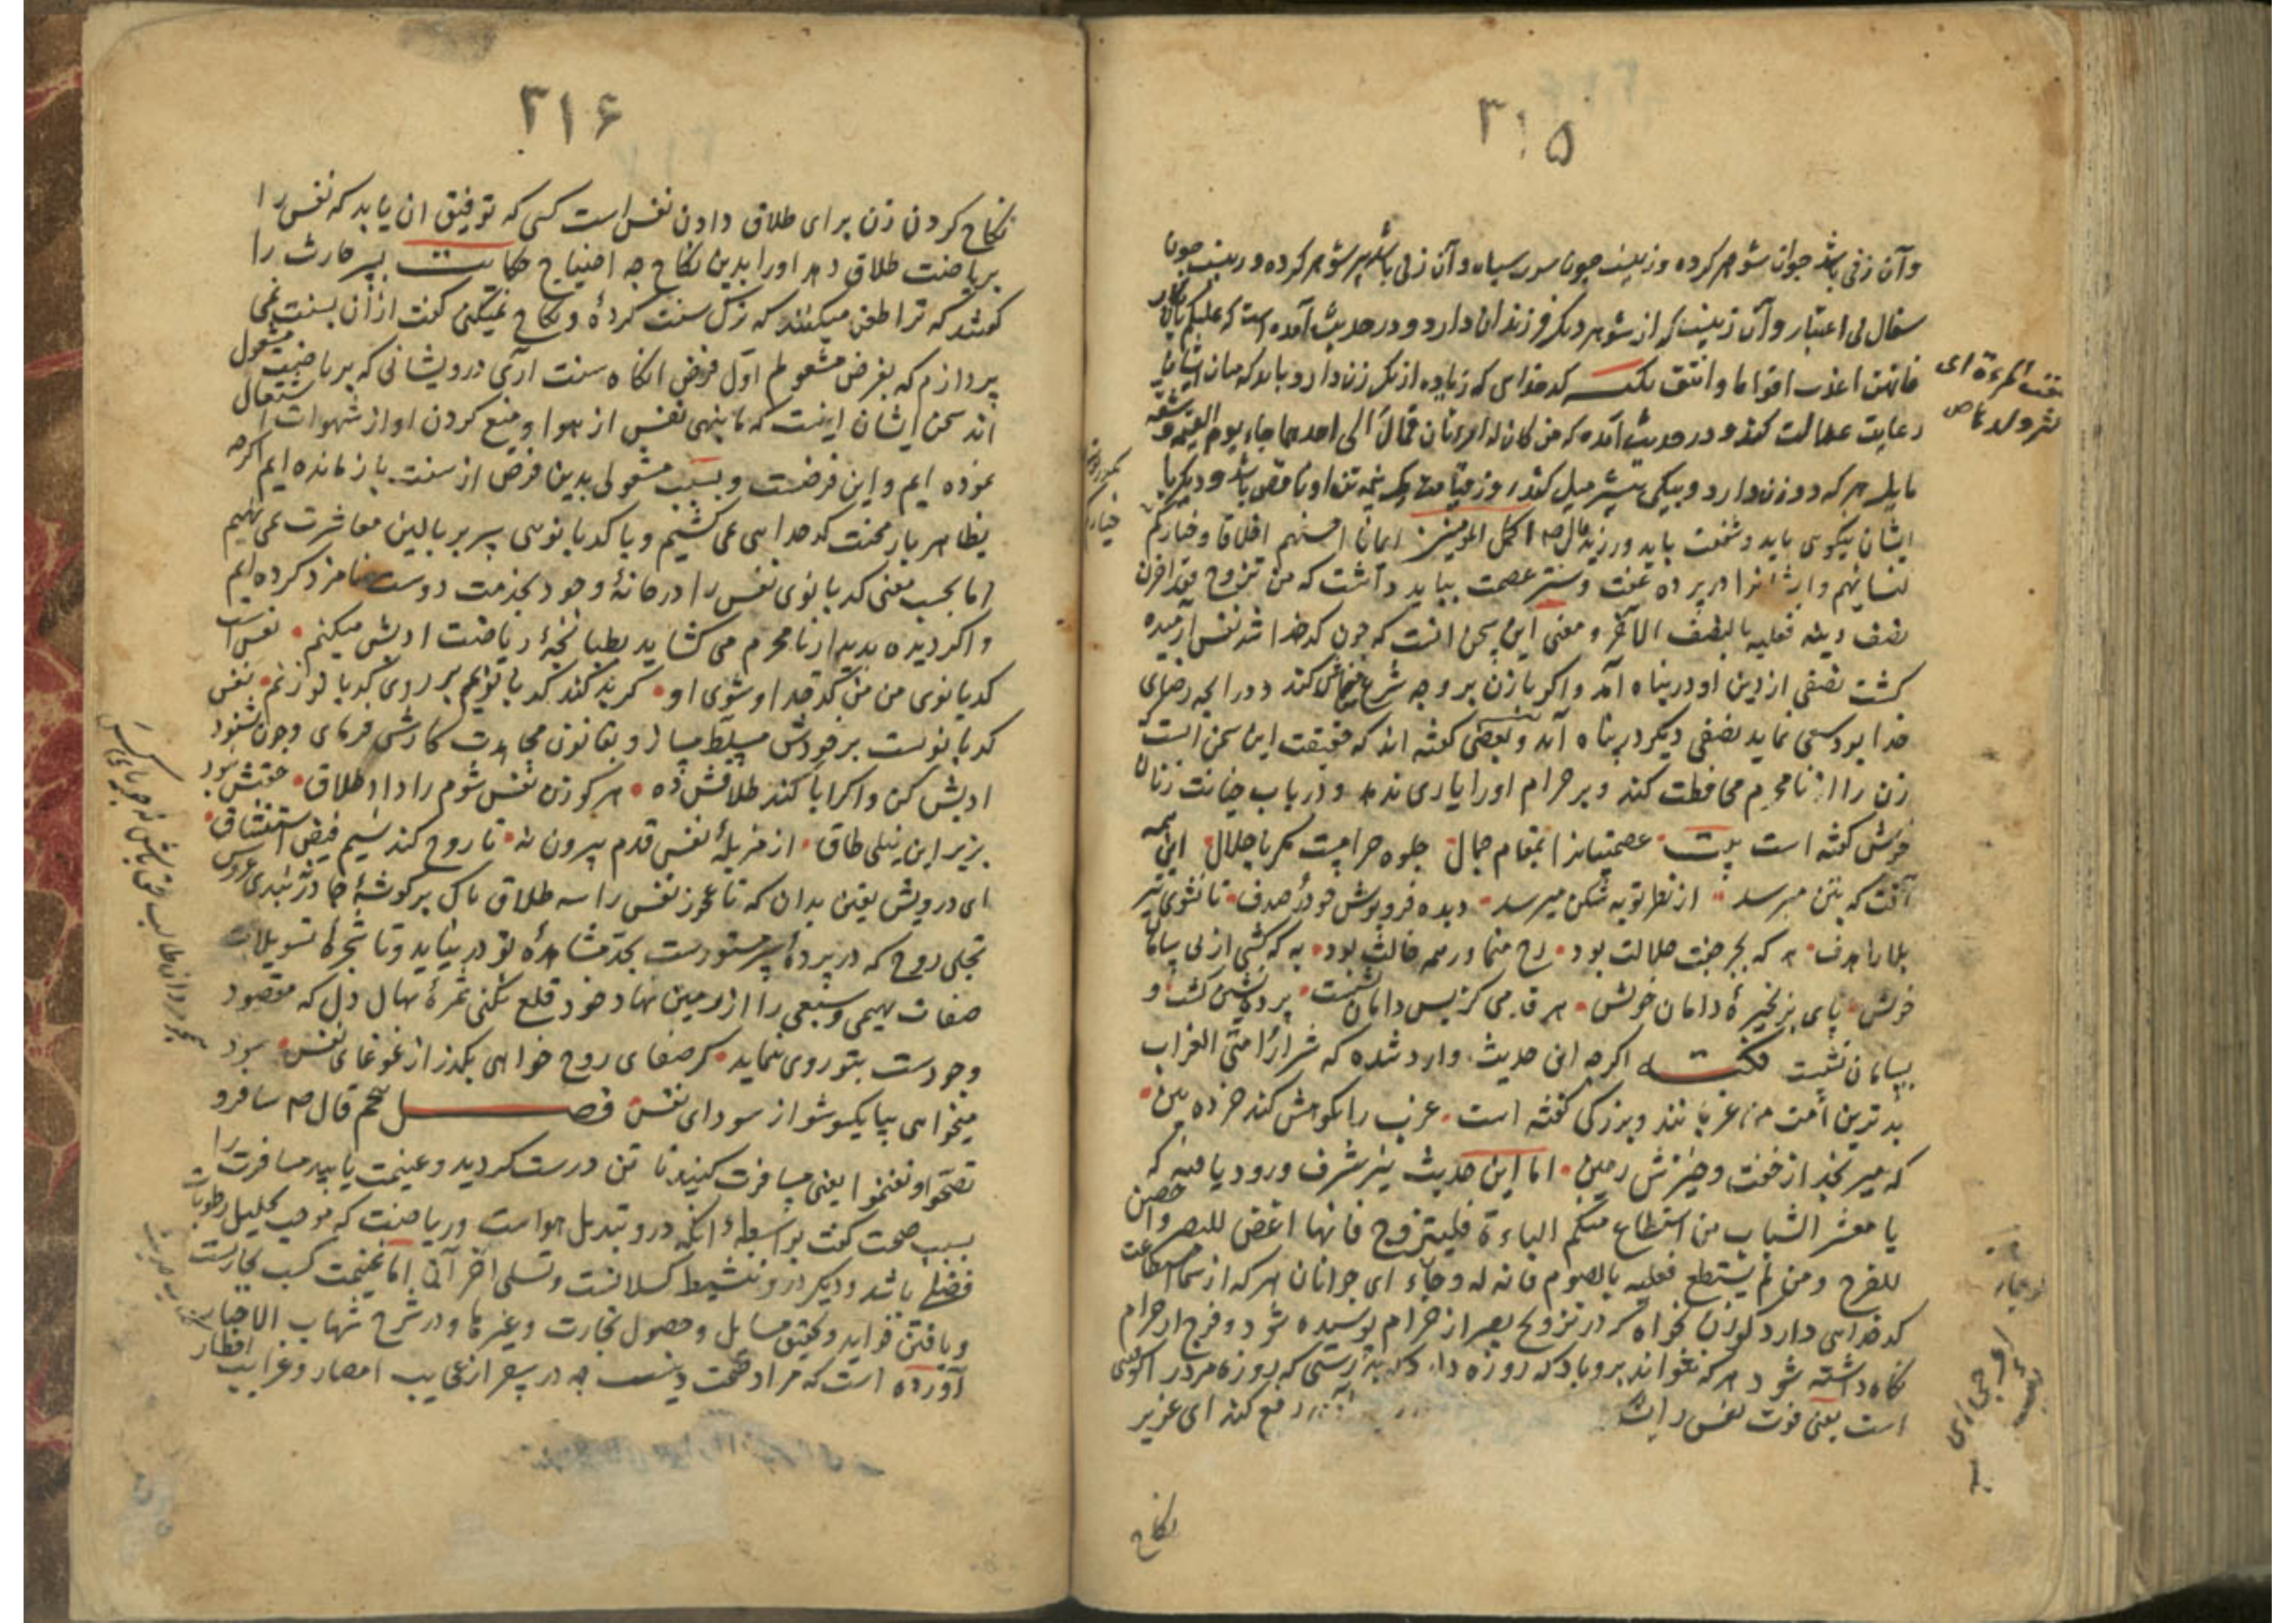 ۳۱۵
وآن زنی باشد جوان شوهر کرده وزینب جون سرب سیاه وآن زنی باشد پیر شوهر کرده و زینب جون
سفال بی اعتبار وآن زنیست که از شوهر دیگر فرزندان دارد و در حدیث آمده است که علیکم بالابکار
فانهن اعذب افواها وانتق نکته کدخدای که زیاده از یک زن دارد باید که میان ایشان
رعایت عدالت کند و در حدیث آمده که من کان له امرءتان فمال الی احدیهما جاء یوم القیمة و شقه
مایل هر که دو زن دارد و بیکی بیشتر میل کند روز قیامت یک نیمه تن او ناقص باشد و دیگر با
ایشان نیکوی باید و شفقت باید ورزید قال ص اکمل المومنین ایمانا احسنهم اخلاقا و خیارکم
لنسائهم وایشانرا در پرده عفت وستر عصمت بباید داشت که من تزوج فقد احرز
نصف دینه فعلیه بالنصف الآخر و معنی این سخن انست که جون کدخدا شد نفس آرمیده
کشت نصفی از دین او در پناه آمد واکر بازن بر وجه شرع معاش کند و در انجه رضای
خدا بود سعی نماید نصفی دیگر در پناه آمد وبعضی کفته اند که حقیقت این سخن انست
زن را از نامحرم محافظت کند و بر حرام اورا یاری ندهد و در باب خیانت زنان
خوش کفته است بیت عصمتیانرا بمقام جمال جلوه حرامست مکر با حلال این همه
آفت که بتن میرسد از نظر توبه شکن میرسد دیده فروپوش چو در صدف تا نشوی تیر
بلا را هدف هر که بجز جفت حلالت بود رخ منما ور همه خالت بود به که کشی از پی سامان
خویش پای بزنجیرهٔ دامان خویش هر قدمی کز پس دامان نشست پرده نشین کشت و
بسامان نشست نکته اکرچه این حدیث وارد شده که شرار امتی العزاب
بدترین امت من عزبانند وبزرکی کفته است عزب را نکوهش کند خرده بین
که میرنجد از خفت وخیزش زمین اما این حدیث نیز شرف ورود یافته که
یا معشر الشباب من استطاع منکم الباءة فلیتزوج فانها اغض للبصر واحصن
للفرج ومن لم یستطع فعلیه بالصوم فانه له وجاء ای جوانان هر که از شما استطاعت
کدخدایی دارد کوزن بخواه که در تزویج بصر از حرام پوشیده شود و فرج از حرام
نکاه داشته شود هر که نتواند برو باد که روزه دارد که بدرستی که روزه مر در اکوفتن
است یعنی قوت نفس را دفع کند ای عزیز
نکاح
۳۱۶
نکاح کردن زن برای طلاق دادن نفس است کسی که توفیق ان یابد که نفس را
بریاضت طلاق دهد اورا بدین نکاح چه احتیاج حکایت بشر حارث را
کفتند که ترا طعن میکنند که ترک سنت کردهٔ و نکاح نمیکنی کفت ازان بسنت نمی
پردازم که بفرض مشغولم اول فرض انکاه سنت آری درویشانی که بریاضت مشغول
اند سخن ایشان اینست که ما بنهی نفس از هوا و منع کردن او از شهوات اشتغال
نموده ایم واین فرضست وبسبب مشغولی بدین فرض از سنت باز مانده ایم اکرچه
بظاهر بار محنت کدخدایی نمی کشیم و با کدبانوی سر بر بالین معاشرت نمی نهیم
اما بحسب معنی کدبانوی نفس را در خانهٔ وجود بخدمت دوست نامزد کرده ایم
واکر دیده بدیدار نامحرم می کشاید بطبانچهٔ ریاضت ادبش میکنم نفس است
کدبانوی من من کدخدا و شوی او کر بد کند کدبانویم بر روی کدبانو زنم نفس
کدبانوست بر خودش مسلط مساز وبقانون مجاهدت کارش فرمای وچون نشنود
ادبش کن واکر ابا کند طلاقش ده هر کو زن نفس شوم را داد طلاق جفتش نبود
بزیر این نیلی طاق از مزبلهٔ نفس قدم بیرون نه تا روح کند نسیم فیض استنشاق
ای درویش یقین بدان که تا عجوز نفس را سه طلاق پاک بر کوشهٔ چادر نبندی عروس
تجلی روح که در پردهٔ سر مستورست بحد مشاهدهٔ تو در نیاید وتا شجرهٔ تسویلات
صفات بهیمی وسبعی را از زمین نهاد خود قلع نکنی ثمرهٔ نهال دل که مقصود
وجودست بتو روی ننماید کر صفای روح خواهی بکذر از غوغای نفس سود
میخواهی بیا یکسو شو از سودای نفس فصل پنجم قال ص سافروا
تصحوا وتغنموا یعنی مسافرت کنید تا تن درست کردید وغنیمت یابید مسافرت را
سبب صحت کفت بواسطهٔ آنکه درو تبدیل هواست وریاضت که موجب تحلیل رطوبات
فضلی باشد ودیکر درو تنشیط کسلانست وتسلی اما غنیمت کسب تجارتست
ویافتن فواید وتحقیق مسایل وحصول تجارت وغیرها ودر شرح شهاب الاخبار
آورده است که مراد صحت دینست چه در سفر از عجایب امصار وغرایب اقطار